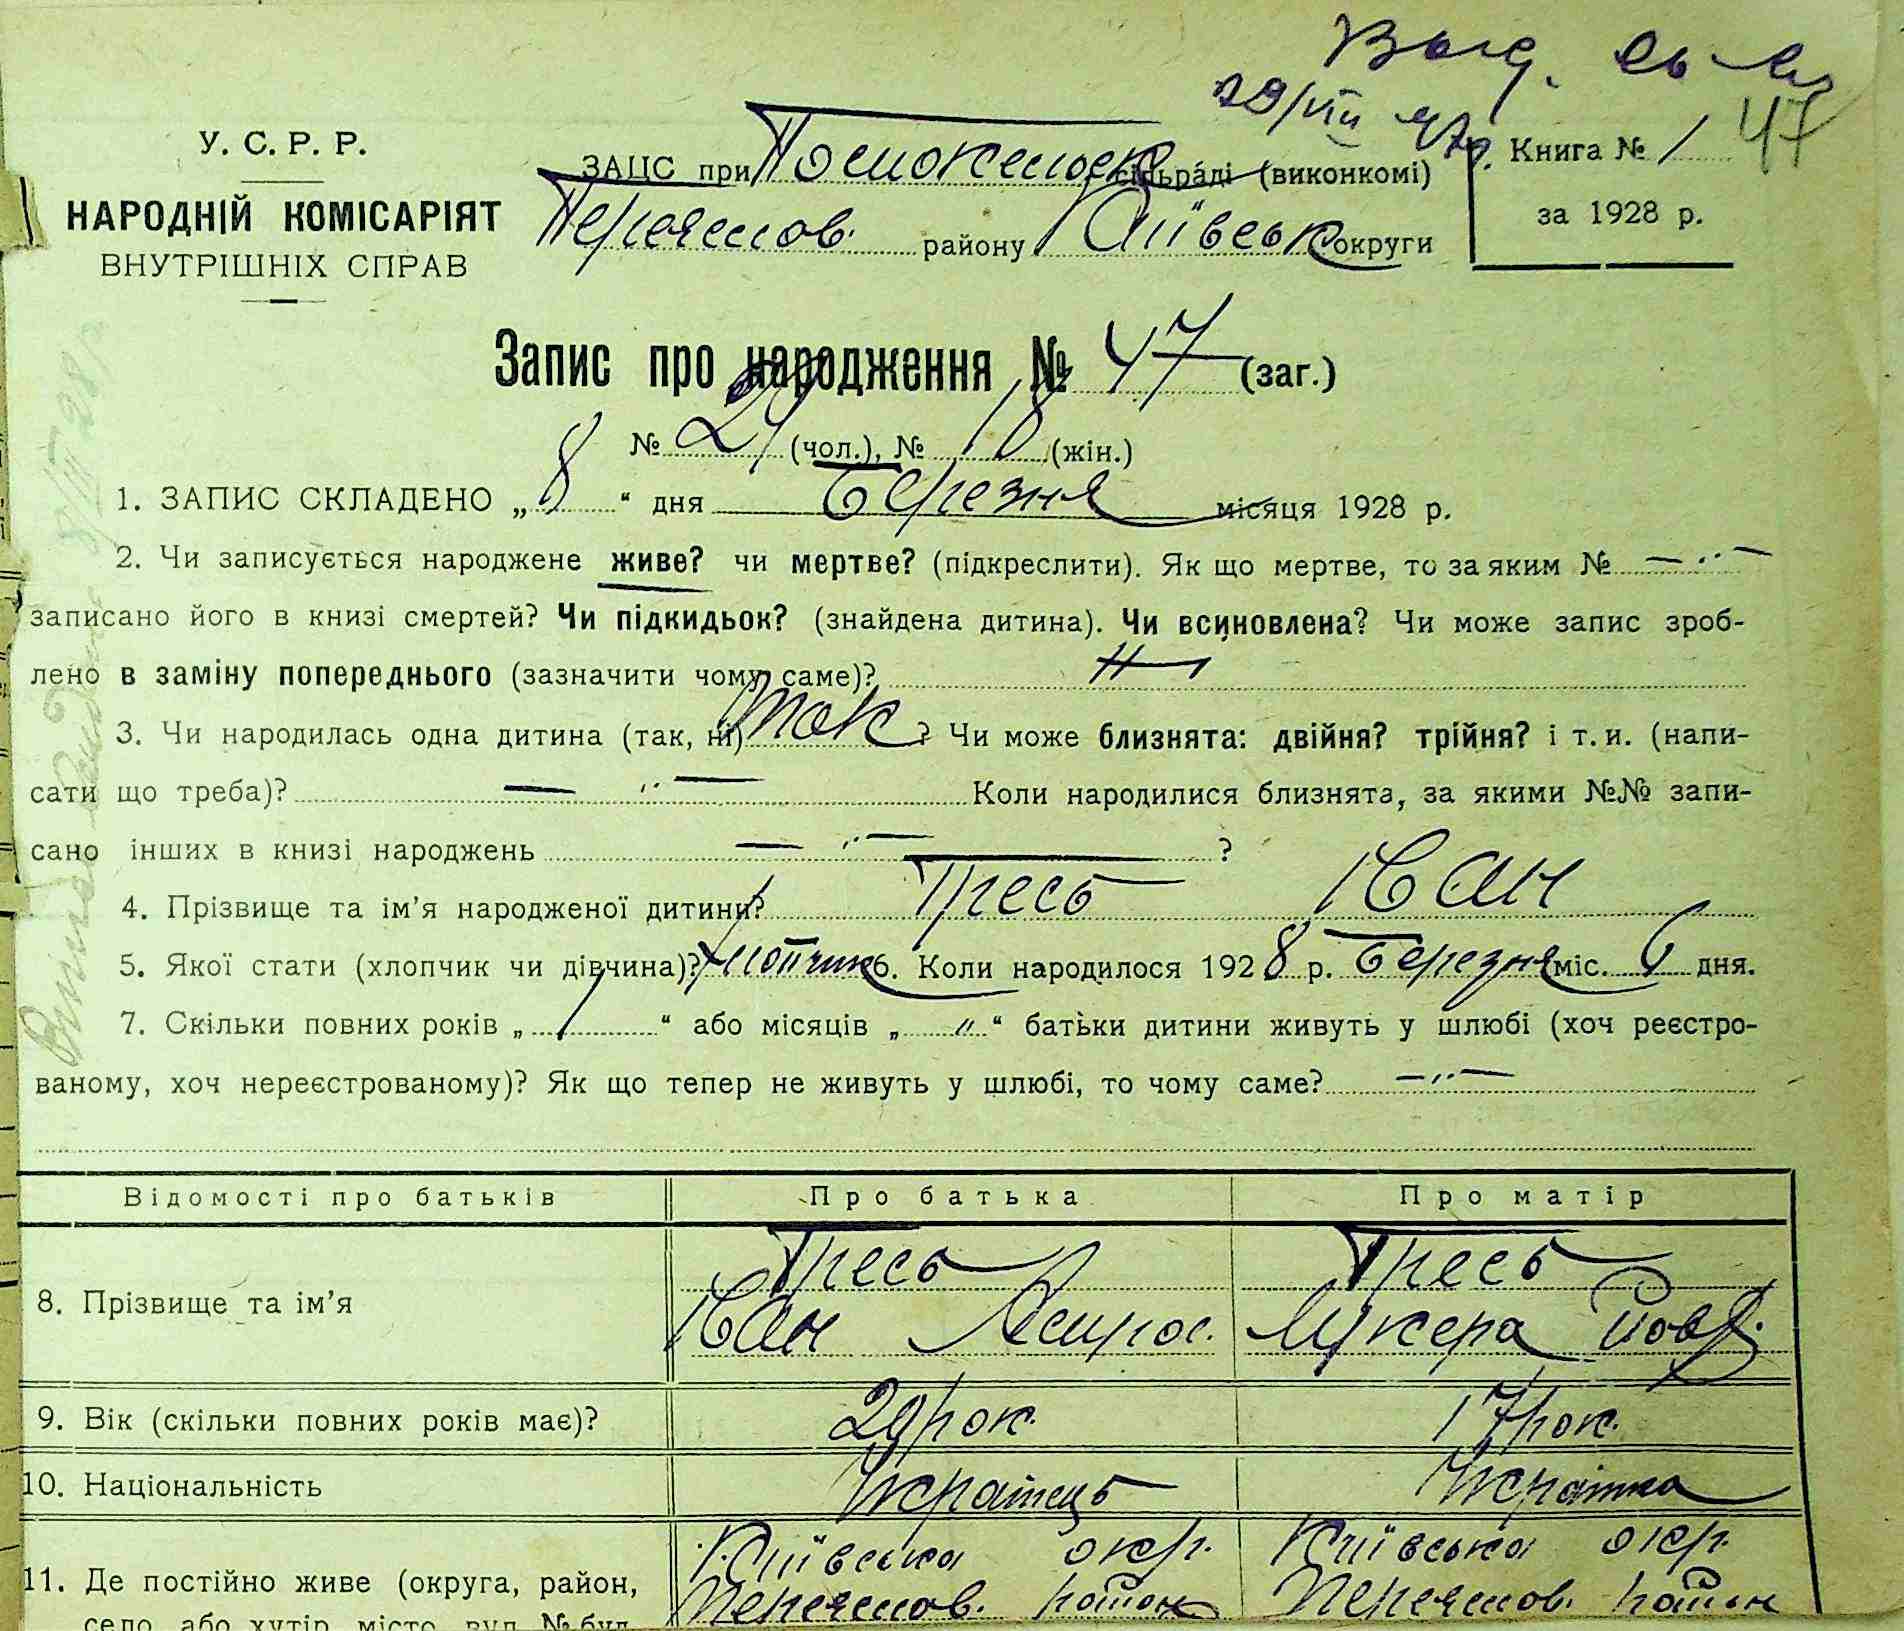 Выд.
Книга № 1 47
за 1928 р.
У. С. Р. Р.
НАРОДНІЙ КОМІСАРІЯТ
ВНУТРІШНІХ СПРАВ
ЗАЦС при сільра́ді (виконкомі)
району Київськ округи
Запис про народження № 47 (заг.)
№ 29 (чол.), № 18 (жін.)
1. ЗАПИС СКЛАДЕНО „ 8 “ дня Березня місяця 1928 р.
2. Чи записується народжене живе? чи мертве? (підкреслити). Як що мертве, то за яким № — ·· —
записано його в книзі смертей? Чи підкидьок? (знайдена дитина). Чи всиновлена? Чи може запис зроб-
лено в заміну попереднього (зазначити чому саме)?
3. Чи народилась одна дитина (так, ні) так ? Чи може близнята: двійня? трійня? і т. и. (напи-
сати що треба)? — ·· — Коли народилися близнята, за якими №№ запи-
сано інших в книзі народжень — ·· — ?
4. Прізвище та ім’я народженої дитини? Гресь Іван
5. Якої стати (хлопчик чи дівчина)? хлопчик 6. Коли народилося 1928 р. Березня міс. 6 дня.
7. Скільки повних років „ 1 “ або місяців „ " “ батьки дитини живуть у шлюбі (хоч реєстро-
ваному, хоч нереєстрованому)? Як що тепер не живуть у шлюбі, то чому саме? — ·· —
Відомості про батьків Про батька Про матір
8. Прізвище та ім’я Гресь Гресь
Іван Лукера
9. Вік (скільки повних років має)? 29 рок. 17 рок.
10. Національність Українець Українка
11. Де постійно живе (округа, район, Київська окр. Київська окр.
село або хутір, місто, вул. № буд. район район